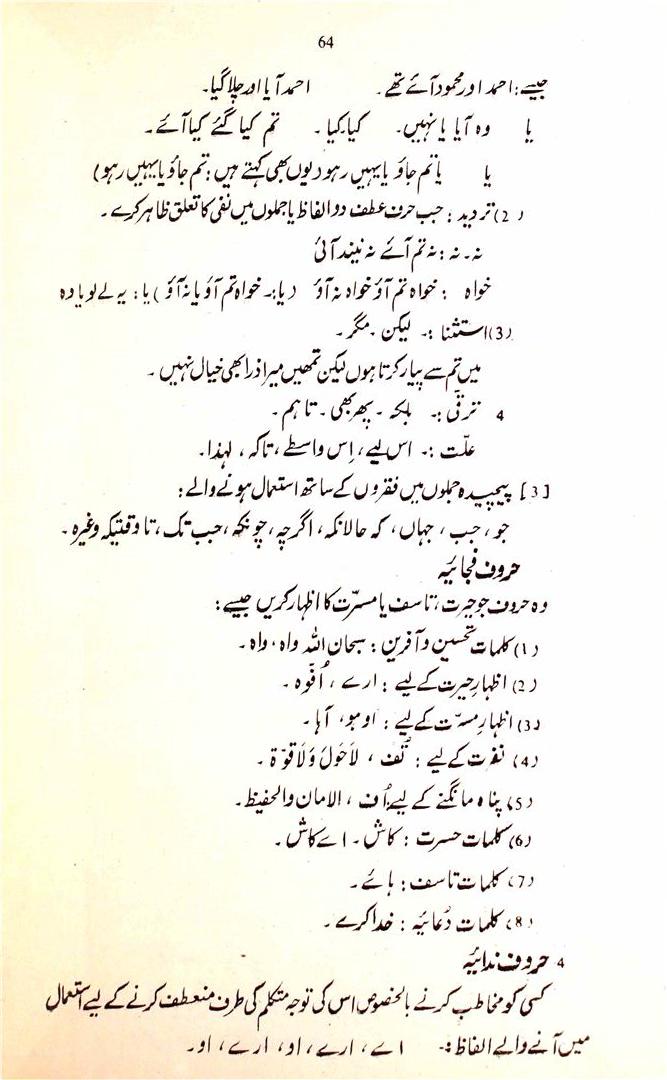 64
جیسے: احمد اور محمود آئے تھے۔ احمد آیا اور چلا گیا۔
یا وہ آیا یا نہیں۔ کیا۔کیا۔ تم کیا گئے کیا آئے۔
یا یا تم جاؤ یا یہیں رہو (یوں بھی کہتے ہیں: تم جاؤ یا یہیں رہو)
(2) تردید: جب حرف عطف دو الفاظ یا جملوں میں نفی کا تعلق ظاہر کرے۔
نہ۔ نہ: نہ تم آئے نہ نیند آئی
خواہ: خواہ تم آؤ خواہ نہ آؤ (یا:۔ خواہ تم آؤ یا نہ آؤ) یا: یہ لے لو یا وہ
(3) استثنا:۔ لیکن۔ مگر۔
میں تم سے پیار کرتا ہوں لیکن تمھیں میرا ذرا بھی خیال نہیں۔
4 ترقّی:۔ بلکہ۔ پھر بھی۔ تاہم۔
علّت:۔ اس لیے، اِس واسطے، تاکہ، لہٰذا۔
[3] پیچیدہ جملوں میں فقروں کے ساتھ استعمال ہونے والے:
جو، جب، جہاں، کہ حالانکہ، اگرچہ، چونکہ، جب تک، تا وقتیکہ وغیرہ۔
حروف فجائیہ
وہ حروف جو حیرت، تاسف یا مسرّت کا اظہار کریں جیسے:
(1) کلمات تحسین و آفرین: سبحان اللہ واہ، واہ۔
(2) اظہارِ حیرت کے لیے: ارے، اُفّوہ۔
(3) اظہارِ مسرّت کے لیے: اوہو، آہا۔
(4) نفرت کے لیے: تُف، لَاحَولَ وَلَا قوّۃ۔
(5) پناہ مانگنے کے لیے: اُف، الامان والحفیظ۔
(6) کلمات حسرت: کاش۔ اے کاش۔
(7) کلمات تاسف: ہائے۔
(8) کلمات دُعائیہ: خدا کرے۔
4 حروف ندائیہ
کسی کو مخاطب کرنے بالخصوص اس کی توجہ متکلم کی طرف منعطف کرنے کے لیے استعمال
میں آنے والے الفاظ:۔ اے، ارے، او، ارے، او۔